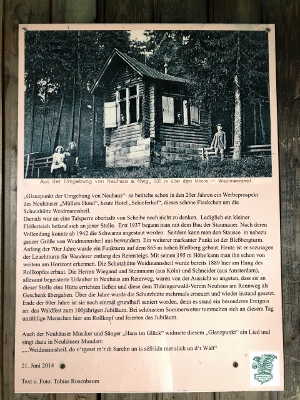 Aus der Umgebung von Neuhaus a. Rwg., 835 m über dem Meere – Weidmannsheil
„Glanzpunkt der Umgebung von Neuhaus“ - so betitelte schon in den 20er Jahren ein Werbeprospekt
das Neuhäuser „Müllers Hotel“, heute Hotel „Schieferhof“, dieses schöne Fleckchen um die
Schutzhütte Weidmannsheil.
Damals war an eine Talsperre oberhalb von Scheibe noch nicht zu denken. Lediglich ein kleiner
Floßteich befand sich an jener Stelle. Erst 1937 begann man mit dem Bau der Staumauer. Nach deren
Vollendung konnte ab 1942 die Schwarza angestaut werden. Seitdem kann man den Stausee in nahezu
ganzer Größe von Weidmannsheil aus bewundern. Ein weiterer markanter Punkt ist der Bleßbergturm.
Anfang der 70er Jahre wurde ein Funkturm auf dem 865 m hohen Bleßberg gebaut. Heute ist er sozusagen
der Leuchtturm für Wanderer entlang des Rennsteigs. Mit seinen 198 m Höhe kann man ihn schon von
weitem am Horizont erkennen. Die Schutzhütte Weidmannsheil wurde bereits 1889 hier am Hang des
Rollkopfes erbaut. Die Herren Wiegand und Stammann (aus Köln) und Schneider (aus Amsterdam),
allesamt begeisterte Urlauber in Neuhaus am Rennweg, waren von der Aussicht so angetan, dass sie an
dieser Stelle eine Hütte errichten ließen und diese dem Thüringerwald-Verein Neuhaus am Rennweg als
Geschenk übergaben. Über die Jahre wurde die Schutzhütte mehrmals erneuert und wieder instand gesetzt.
Ende der 80er Jahre ist sie noch einmal grundhaft saniert worden, denn es stand ein besonderes Ereignis
an: das Waldfest zum 100jährigen Jubiläum. Bei schönstem Sommerwetter tummelten sich an diesem Tag
unzählige Menschen hier am Rollkopf und feierten das Jubiläum.
Auch der Neuhäuser Musiker und Sänger „Hans im Glück“ widmete diesem „Glanzpunkt“ ein Lied und
singt darin in Neuhäuser Mundart:
„...Weidmannsheil, do v'rgesst m'r di Sorchn un is
21. Juni 2014
Text u. Foto: Tobias Rosenbaum